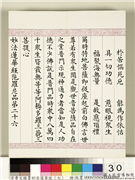 於苦惱死厄 能為作依怙
具一切功德 慈眼視眾生
福聚海無量 是故應頂禮
爾時持地菩薩即從座起前白佛言世
尊若有眾生聞是觀世音菩薩品自在
之業普門示現神通力者當知是人功
德不少佛說是普門品時眾中八萬四
千眾生皆發無等等阿耨多羅三藐三
菩提心
妙法蓮華經陀羅尼品第二十六
30